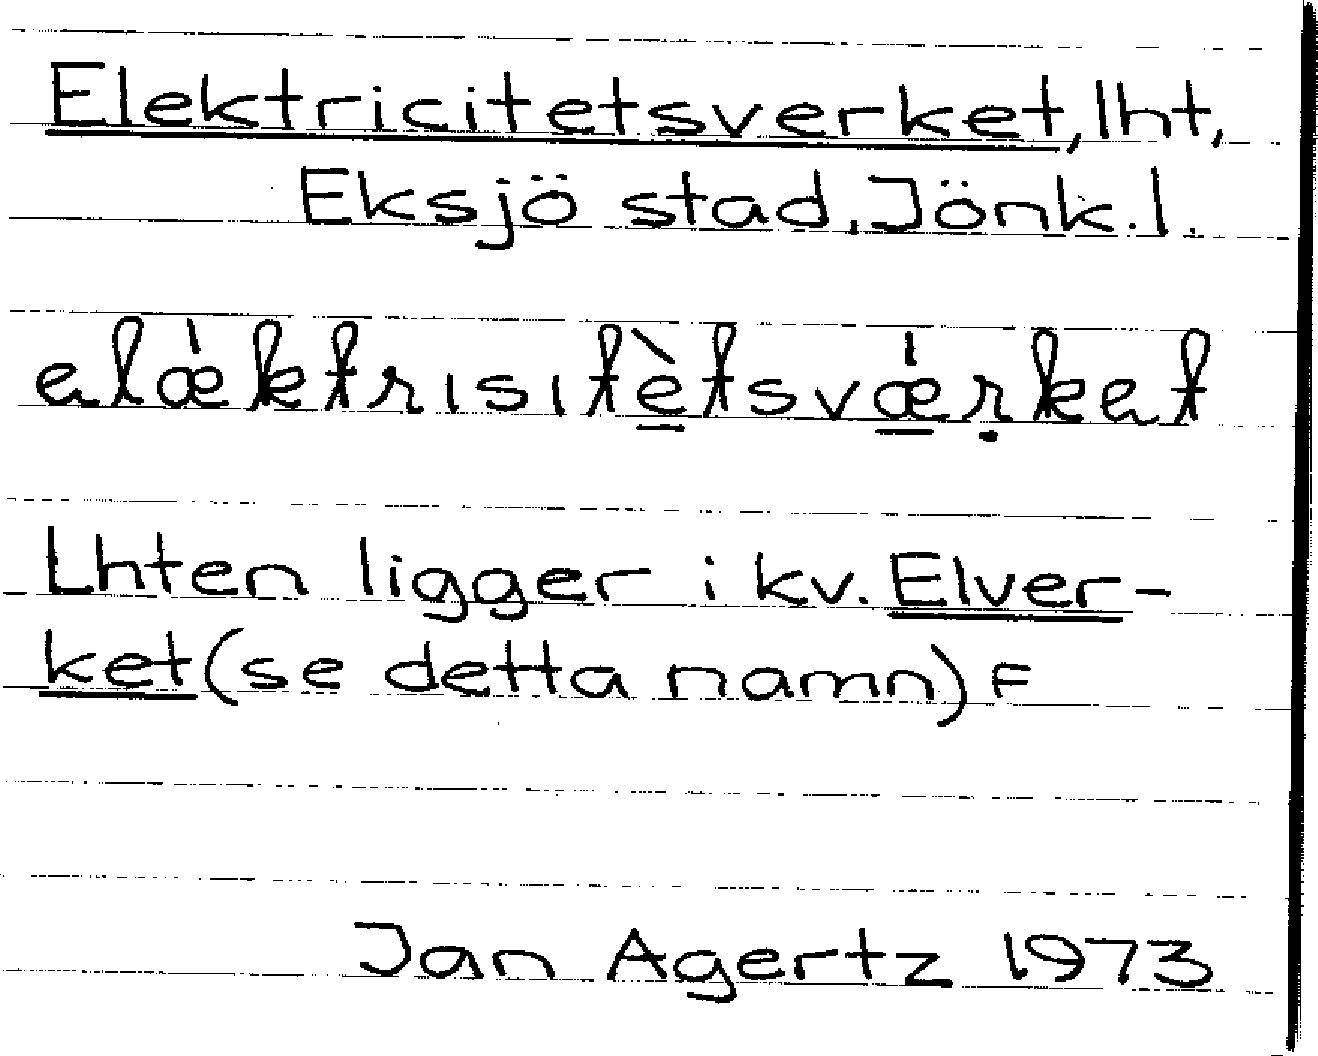 Elektricitetsverket, lht,
Eksjö stad, Jönk. l.
alǽktrisitè̱tsvǽ̱ṛkat
Lhten ligger i kv. Elver-
ket (se detta namn) F
Jan Agertz 1973